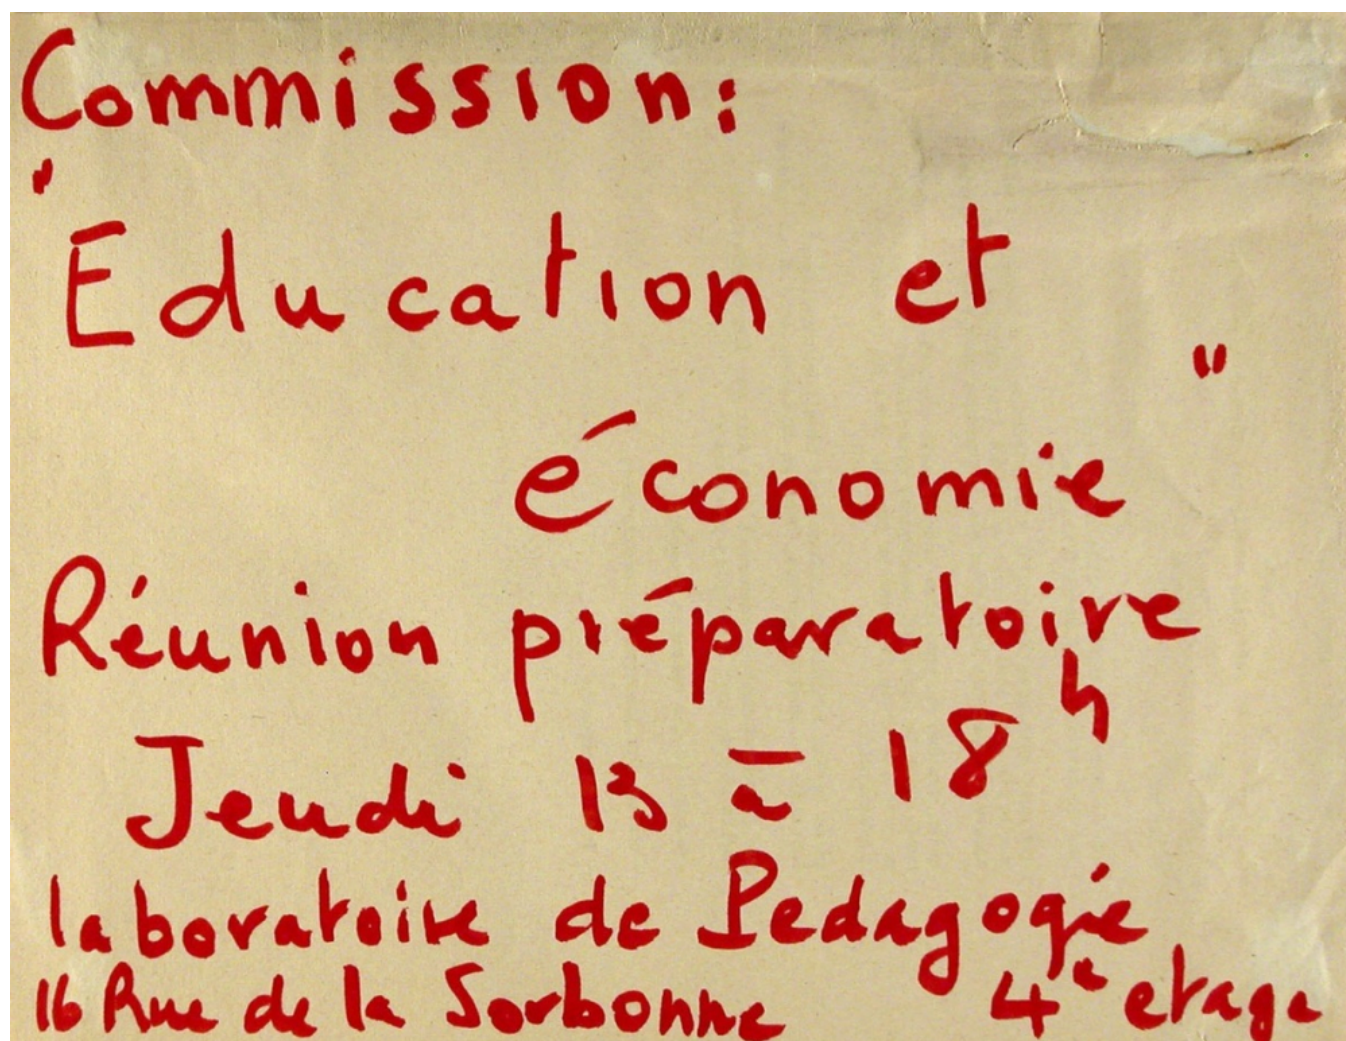 Commission:
"
Education et
"
économie
Réunion préparatoire
Jeudi 13 à 18h
laboratoire de Pedagogie
16 Rue de la Sorbonne 4e etage